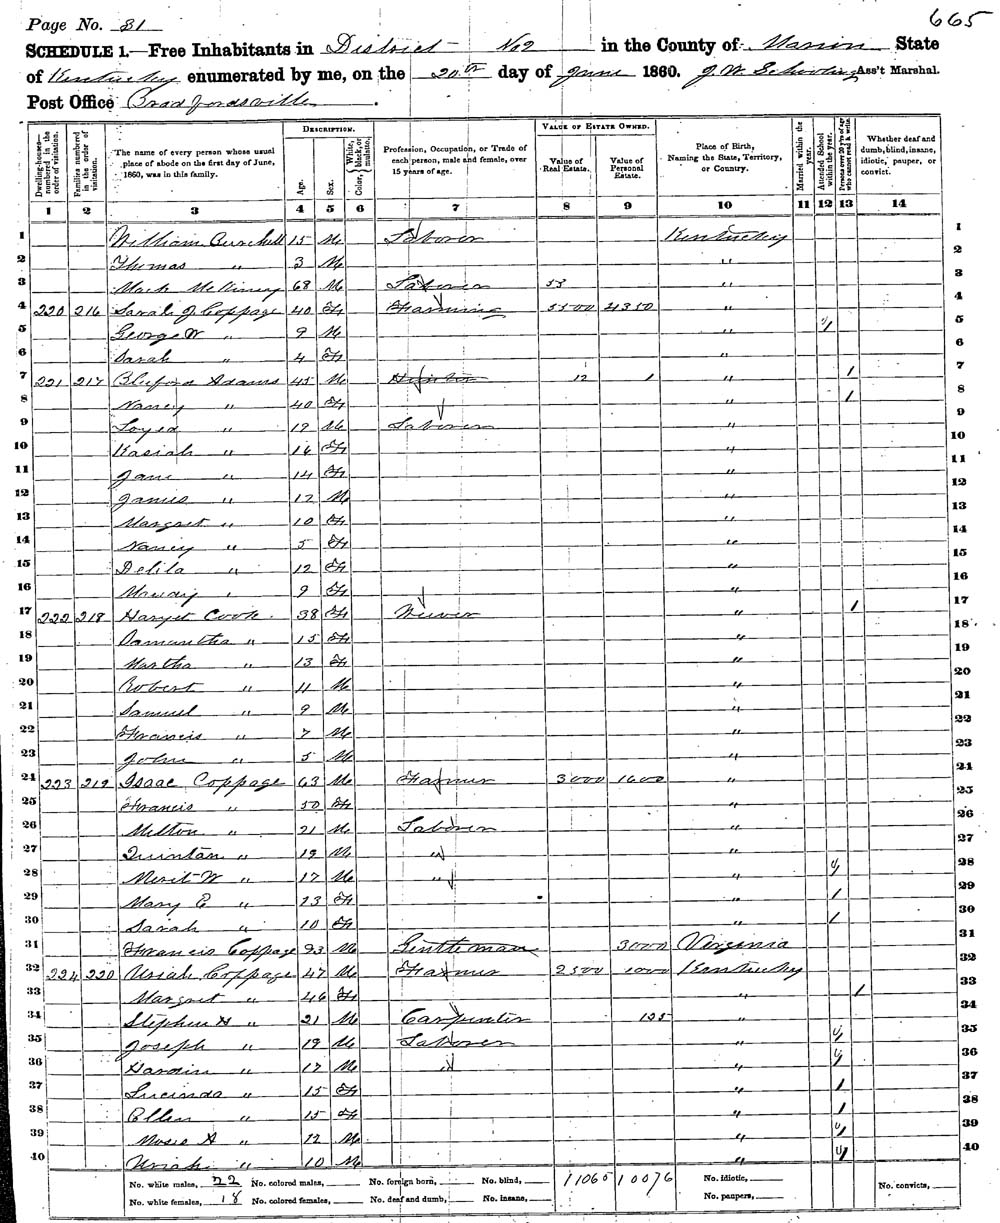 665
Page No. 31
SCHEDULE 1.—Free Inhabitants in District No 2 in the County of Marion State
of Kentucky enumerated by me, on the 20th day of June 1860. J. W. Schooling Ass't Marshal.
Post Office Bradfordsville
Dwelling-houses—numbered in the order of visitation.
Families numbered in the order of visitation.
The name of every person whose usual place of abode on the first day of June, 1860, was in this family.
DESCRIPTION.
Age.
Sex.
Color, White, black, or mulatto.
Profession, Occupation, or Trade of each person, male and female, over 15 years of age.
VALUE OF ESTATE OWNED.
Value of Real Estate.
Value of Personal Estate.
Place of Birth, Naming the State, Territory, or Country.
Married within the year.
Attended School within the year.
Persons over 20 y'rs of age who cannot read & write.
Whether deaf and dumb, blind, insane, idiotic, pauper, or convict.
1 2 3 4 5 6 7 8 9 10 11 12 13 14
1 William 15 M Laborer Kentucky 1
2 Thomas " 3 M " 2
3 Mark McKinney 68 M Laborer 53 " 3
4 220 216 Sarah J Coppage 40 F Farming 5500 4350 " 4
5 George W " 9 M " / 5
6 Sarah " 4 F " 6
7 221 217 Bluford Adams 45 M 12 1 " 1 7
8 Nancy " 40 F " 1 8
9 Loyed " 19 M Laborer " 9
10 Kasiah " 16 F " 10
11 Jane " 14 F " 11
12 James " 12 M " 12
13 Margret " 10 F " 13
14 Nancy " 5 F " 14
15 Delila " 12 F " 15
16 " 9 F " 16
17 222 218 Haryet Cook 38 F Weiver " 1 17
18 Samantha " 15 F " 18
19 Martha " 13 F " 19
20 Robert " 11 M " 20
21 Samuel " 9 M " 21
22 Francis " 7 M " 22
23 John " 5 M " 23
24 223 219 Isaac Coppage 63 M Farmer 3000 1600 " 24
25 Francis " 50 F " 25
26 Milton " 21 M Laborer " 26
27 Quintan " 19 M " " 27
28 Merit W " 17 M " " / 28
29 Mary E " 23 F " / 29
30 Sarah " 10 F " / 30
31 Francis Coppage 93 M Gentleman 3000 Virginia 31
32 224 220 Uriah Coppage 47 M Farmer 2500 1000 Kentucky 32
33 Margret " 46 F " 1 33
34 Stephen H " 21 M Carpenter 125 " 34
35 Joseph " 19 M Laborer " / 35
36 Hardin " 17 M " " / 36
37 Lucinda " 15 F " / 37
38 Ellen " 15 F " / 38
39 Moses A " 12 M " / 39
40 Uriah " 10 M " / 40
No. white males, 22 No. colored males, No. foreign born, No. blind, 11065 10076 No. idiotic, No. convicts,
No. white females, 18 No. colored females, No. deaf and dumb, No. insane, No. paupers,